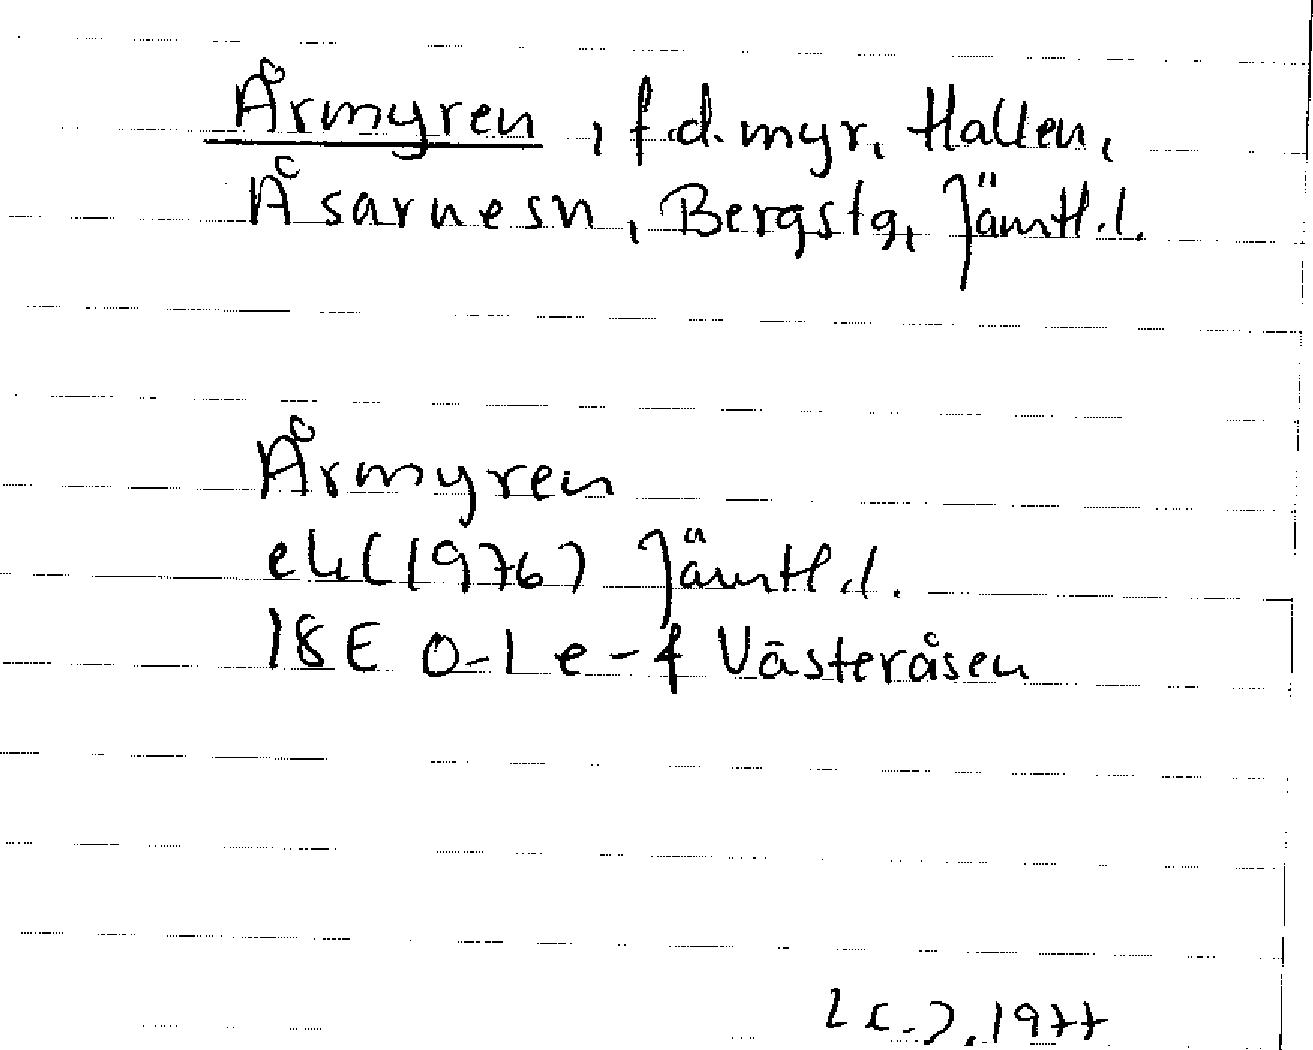 Årmyren, f.d. myr, Hallen,
Åsarnesn, Bergstg, Jämtl.l.
Årmyren
ek (1976) Jämtl.l.
18E 0-1 e-f Västeråsen
1977